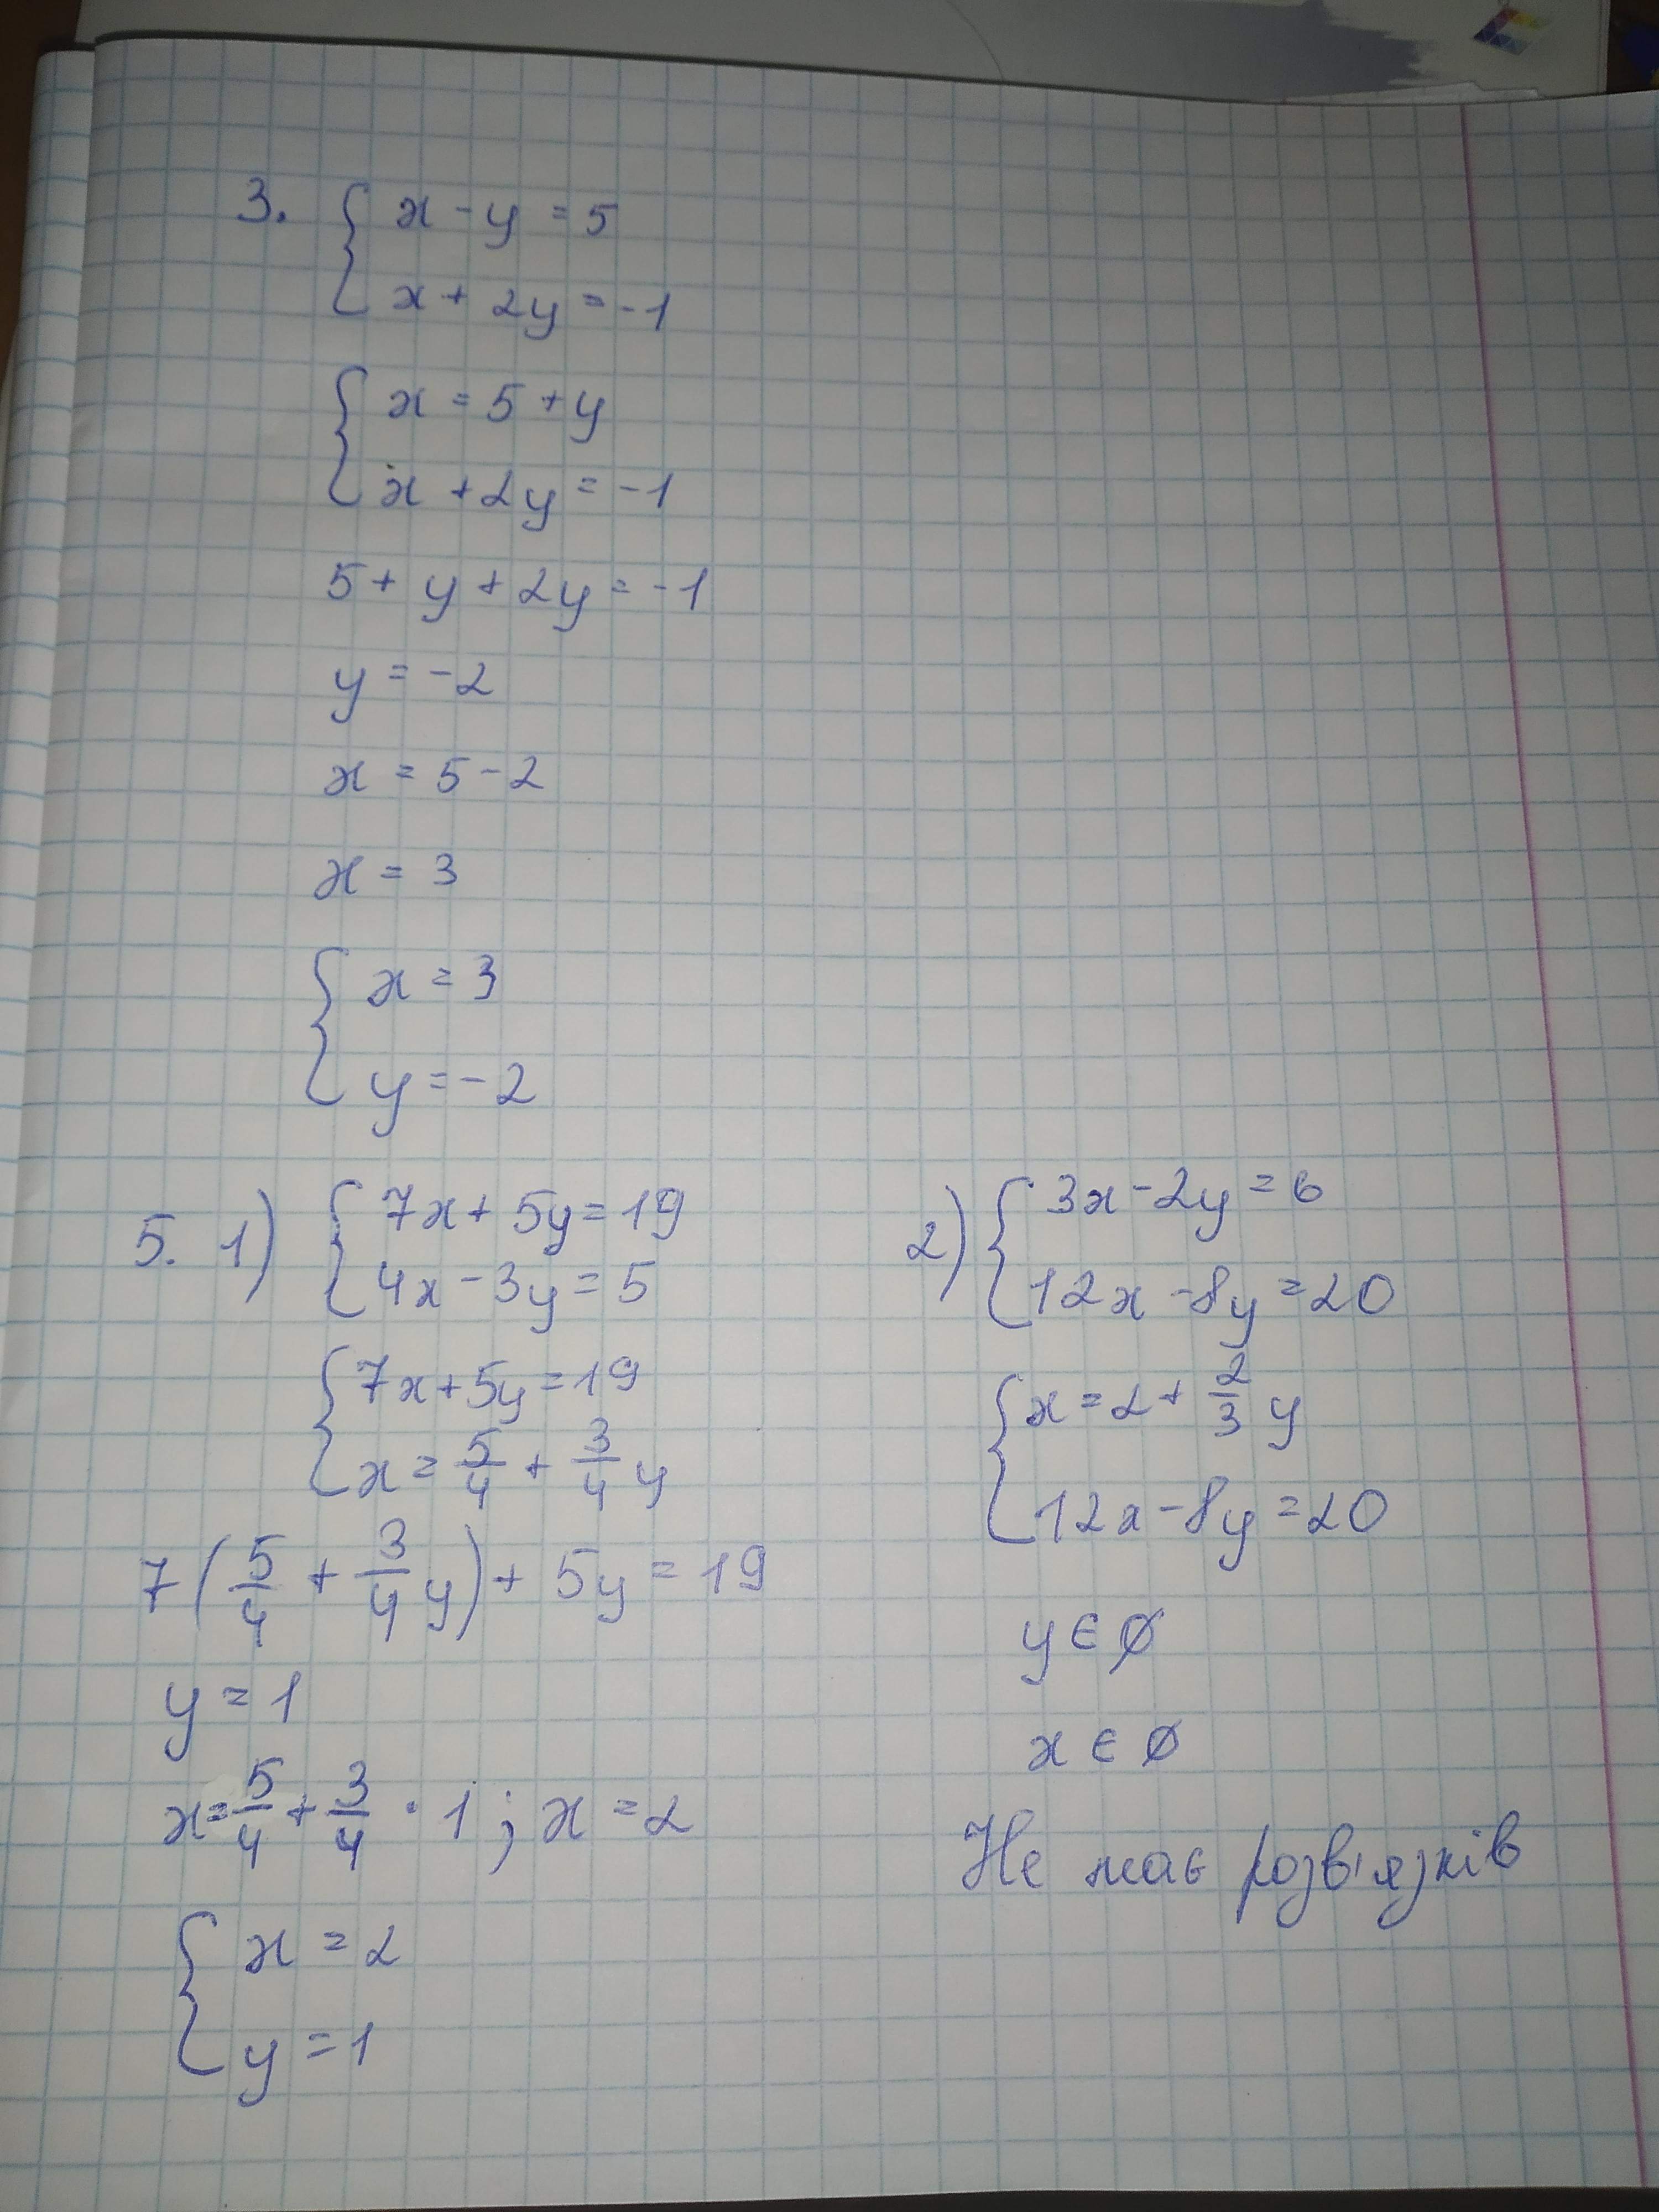 3. { x - y = 5
x + 2y = -1
{ x = 5 + y
x + 2y = -1
5 + y + 2y = -1
y = -2
x = 5 - 2
x = 3
{ x = 3
y = -2
5. 1) { 7x + 5y = 19
4x - 3y = 5
{ 7x + 5y = 19
x = 5/4 + 3/4 y
7(5/4 + 3/4 y) + 5y = 19
y = 1
x = 5/4 + 3/4 · 1 ; x = 2
{ x = 2
y = 1
2) { 3x - 2y = 6
12x - 8y = 20
{ x = 2 + 2/3 y
12x - 8y = 20
y ∈ ∅
x ∈ ∅
Не має розв'язків